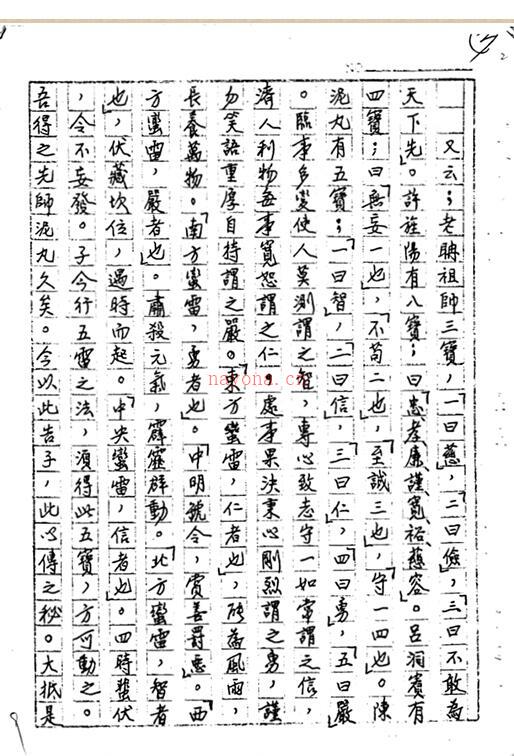 又云：老聃祖師三寶，「一曰慈，」二曰儉，」三曰不敢為
天下先。許旌陽有八寶：曰忠孝廉謹寬裕慈容。」呂洞賓有
四寶：曰無妄一也，「不苟二也，」至誠三也，「守一四也。陳
泥丸有五寶：「一曰智，」二曰信，「三曰仁，「四曰勇，「五曰嚴
。臨事多變使人莫測謂之智，專心致志守一如常謂之信，
濟人利物每事寬恕謂之仁。處事果決秉心剛烈謂之勇，謹
勿笑語重厚自持謂之嚴。東方蠻雷，仁者也，」能為風雨，
長養萬物。「南方蠻雷，勇者也。」申明號令，賞善罰惡。「西
方蠻雷，嚴者也。」肅殺元氣，霹靂群動。「北方蠻雷，智者
也，」伏藏坎位，遇時而起。「中央蠻雷，信者也。四時蟄伏
，令不妄發。子今行五雷之法，須得此五寶，方可動之。
吾得之先師泥丸久矣。今以此告子，此心傳之秘。大抵是
nayona.cn
2